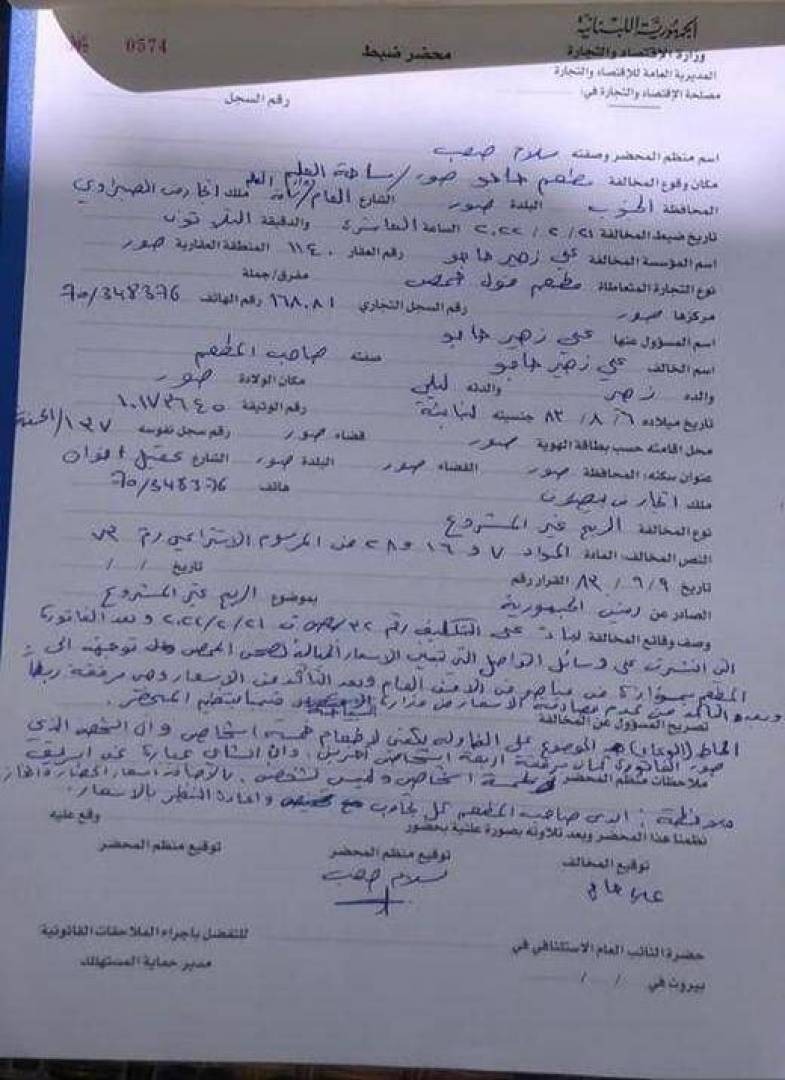 الجمهورية اللبنانية
وزارة الإقتصاد والتجارة
المديرية العامة للاقتصاد والتجارة
مصلحة الإقتصاد والتجارة في:
محضر ضبط
№ 0574
رقم السجل
اسم منظم المحضر وصفته سلام صعب
مكان وقوع المخالفة مطعم حامو صور / ساحة القلم
المحافظة الجنوب البلدة صور الشارع العام / ملك
تاريخ ضبط المخالفة ٢١ / ٢ / ٢٠٢٢ الساعة العاشرة والدقيقة الثلاثون
اسم المؤسسة المخالفة علي زهير حامو رقم العقار ١١٤٠ المنطقة العقارية صور
نوع التجارة المتعاطاة مطعم فول حمص مفرق/جملة
مركزها صور رقم السجل التجاري رقم الهاتف 70/348376
اسم المسؤول عنها علي زهير حامو
اسم المخالف علي زهير حامو صفته صاحب المطعم
والده زهير والدته ليلى مكان الولادة صور
تاريخ ميلاده ٦ / ٨ / ٨٣ جنسيته لبنانية رقم الوثيقة
محل اقامته حسب بطاقة الهوية صور قضاء صور رقم سجل نفوسه ١٣٧
عنوان سكنه: المحافظة صور القضاء صور البلدة صور الشارع
ملك هاتف 70/348376
نوع المخالفة الربح غير المشروع
النص المخالف: المادة المواد ٧ و ١٦ و ٢٨ من المرسوم الاشتراعي رقم ٧٣
تاريخ ٩ / ٩ / ٨٣ القرار رقم تاريخ / /
الصادر عن رئيس الجمهورية بموضوع الربح غير المشروع
وصف وقائع المخالفة بناءً على التكليف رقم ت ٢١/٢/٢٠٢٢ وبعد الفاتورة
التي انتشرت على وسائل التواصل التي تبين الاسعار الخيالية لصحن الحمص توجهنا الى
المطعم بمؤازرة من عناصر من الامن العام وبعد التأكد من الاسعار وهي مرفقة ربطاً
وبعد التأكد من عدم مصادقة الاسعار من وزارة السياحة قمنا بتنظيم المحضر.
تصريح المسؤول عن المخالفة
الموضوع على الطاولة يكفي لإطعام خمسة اشخاص وان الشخص الذي
صور الفاتورة كان برفقة اربعة اشخاص آخرين، وان الشاي عبارة عن ابريق
ملاحظات منظم المحضر لخمسة اشخاص وليس لشخص. بالاضافة اسعار الخضار
ملاحظة: ابدى صاحب المطعم كل تجاوب واعادة النظر بالاسعار.
نظمنا هذا المحضر وبعد تلاوته بصورة علنية بحضور وقع عليه
توقيع المخالف توقيع منظم المحضر توقيع منظم المحضر
سلام صعب
حضرة النائب العام الاستئنافي في للتفضل باجراء الملاحقات القانونية
بيروت في / / مدير حماية المستهلك